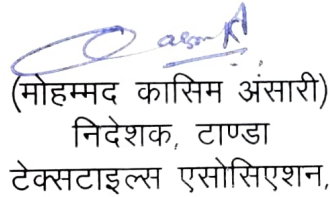 (मोहम्मद कासिम अंसारी)
निदेशक, टाण्डा
टेक्सटाइल्स एसोसिएशन,